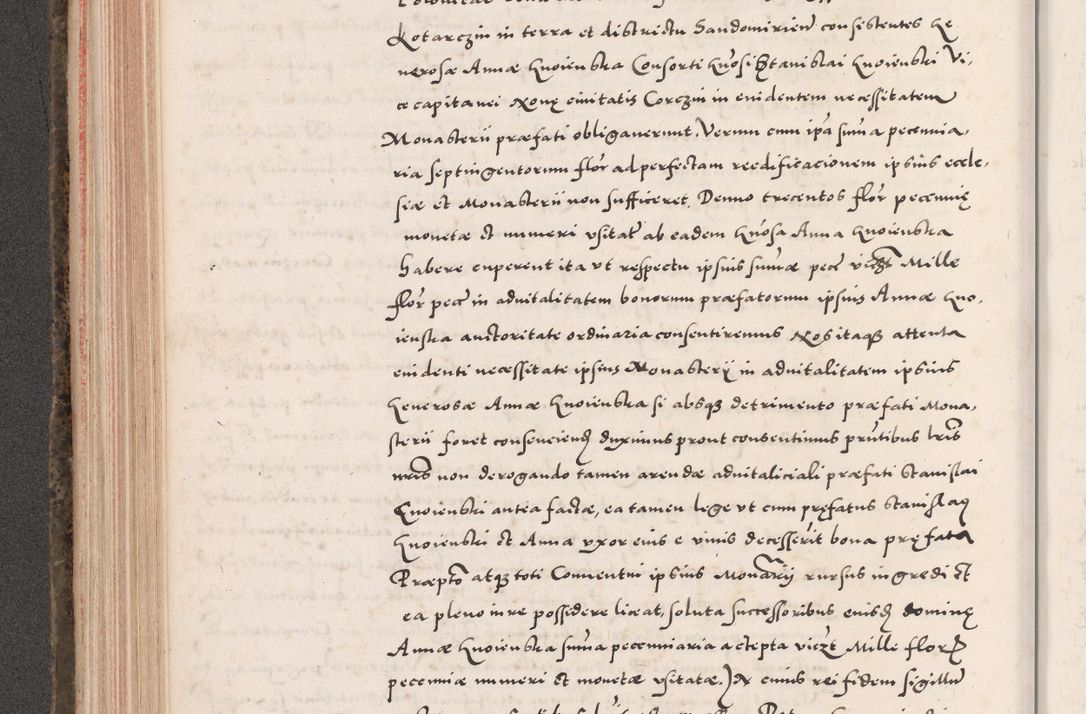 Kotarczin in terra et districtu Sandomirien consistentes Ge
nerosæ Annæ Gnoienska Consorti Gnosi Stanislai Gnoienski Vi,
ce capitanei Nouę ciuitatis Corczin in euidentem necessitatem
Monasterii præfati obligauerunt, Verum cum ipa suma pecunia,
ria septingentorum flor ad perfectam reedificacionem ipsius eccle,
siæ et Monasterii non sufficeret, Denuo trecentos flor pecunię
monetæ et numeri vsitat ab eadem Gnosa Anna Gnoienska
habere cuperent ita vt respectu ipsius sumæ pecc viczt Mille
flor pecc in aduitalitatem bonorum præfatorum ipsius Annæ Gno,
ienska auctoritate ordinaria consentiremus Nos itaq attenta
euidenti necessitate ipsius Monasterij in aduitalitatem ipsius
Generosæ Annæ Gnoienska si absq detrimento præfati Mona,
sterii foret consenciend duximus prout consentimus pntibus lris
nris non derogando tamen arendæ aduitaliciali præfati Stanislai
Gnoienski antea factæ, ea tamen lege vt cum pręfatus Stanislaus
Gnoienski et Anna vxor eius e viuis decesserit bona pręfata
Præpto atq toti Conuentui ipsius Monarij rursus ingredi et
ea pleno iure possidere liceat, soluta successoribus eiusd dominę
Annæ Gnoienska suma pecuniaria accepta viczt Mille flor
pecuniæ numeri et monetæ vsitatæ.) In cuius rei fidem sigillum